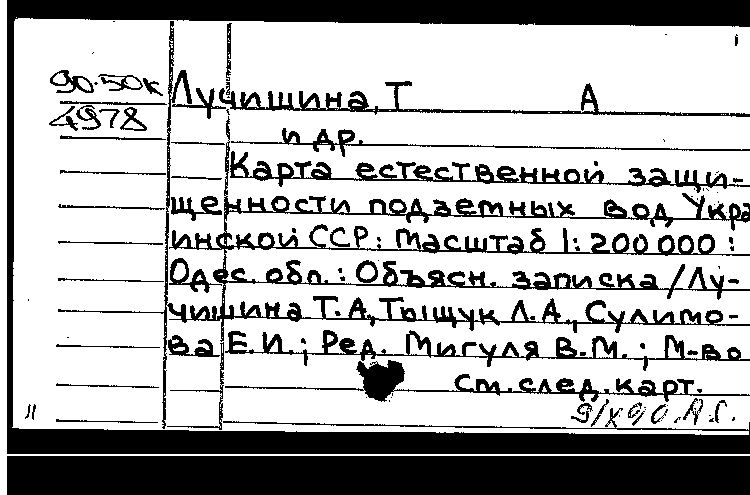 90-50к Лучишина, Т А
4978
и др.
Карта естественной защи-
щенности подземных вод Укра
инской ССР: Масштаб 1:200 000:
Одес. обл.: Объясн. записка/Лу-
чишина Т.А., Тыщук Л.А., Сулимо-
ва Е.И.; Ред. Мигуля В.М.; М-во
См. след. карт.
9/X 90. Л.Г.